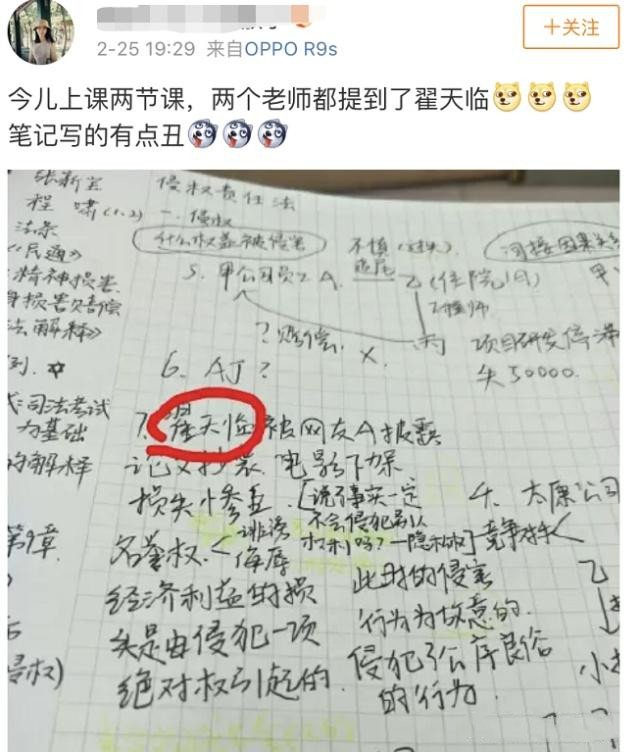 2-25 19:29 来自OPPO R9s
+关注
今儿上课两节课，两个老师都提到了翟天临
笔记写的有点丑
张新宝
程啸(1.2)
法条
《民通》
精神损害
损害赔偿
法解释》
司法考试
为基础
的解释
第9章
侵权责任法
一. 侵权
什么权益被侵害
不慎(过失)
追尾
间接因果关
5. 甲公司员工A
乙(住院1月)
工程师
? 赔偿
X
丙
项目研发停滞
失50000.
6. AJ?
7. 翟天临被网友A披露
论文抄袭 电影下架
损失惨重
[说了事实一定
不会侵犯别人
权利吗?—隐私权]
名誉权<
诽谤
侮辱
经济利益的损
失是由侵犯一项
绝对权引起的.
4. 太原公司
竞争对手
乙
此时的侵害
行为为故意的.
侵犯了公序良俗
的行为.